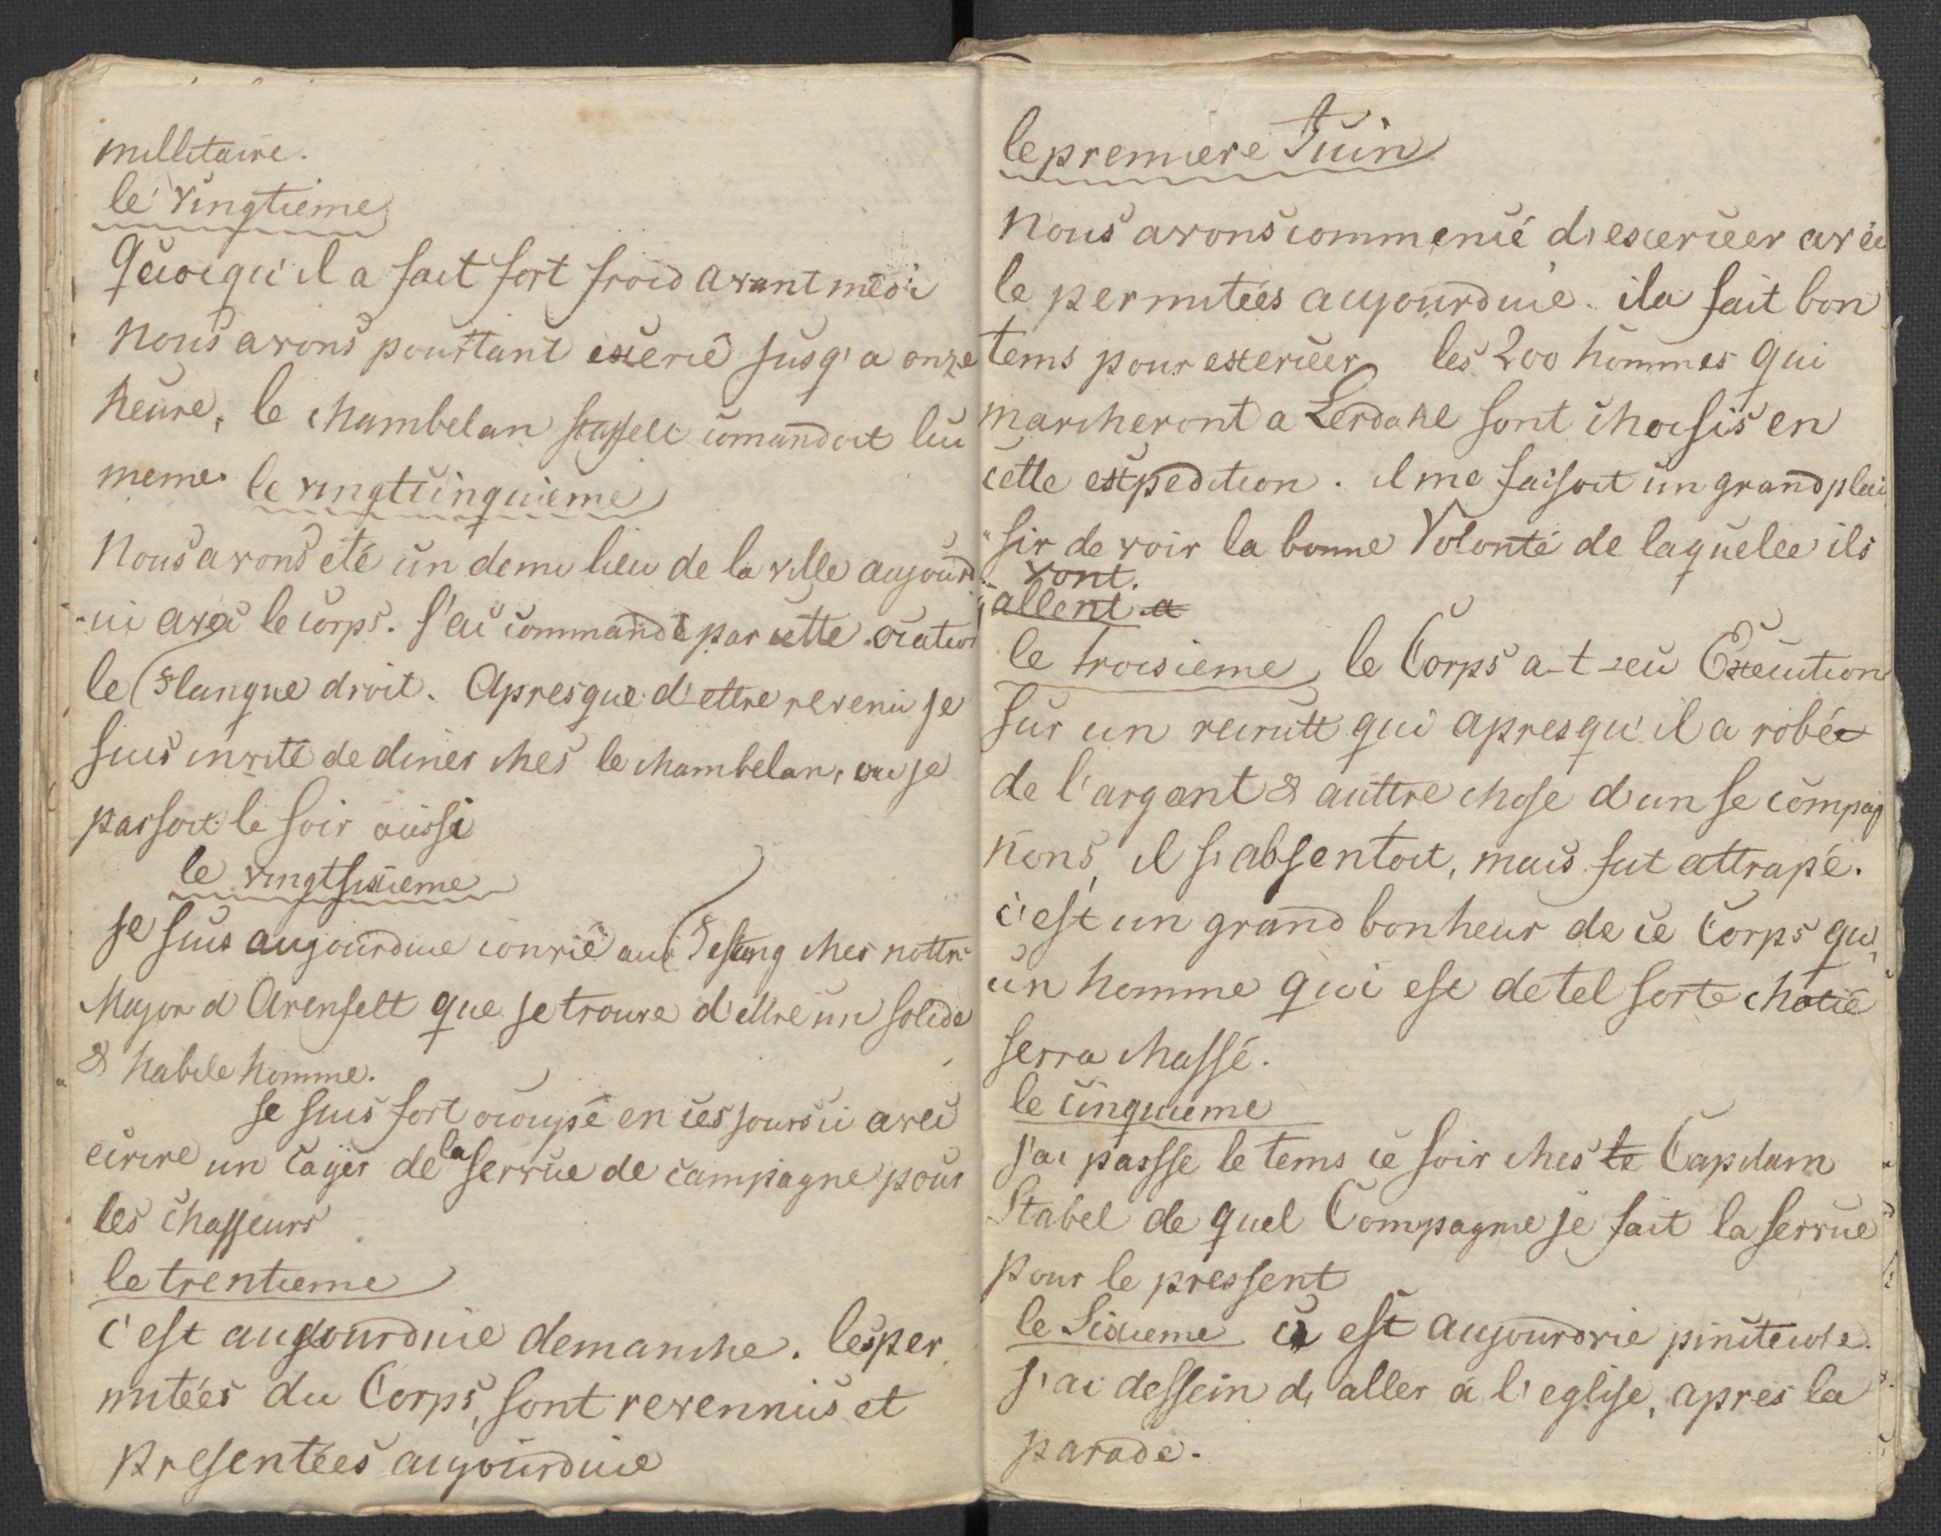 millitaire.
le vingtieme
Quoiqu'il a fait fort froid avant midi
Nous avons pourtant exercé jusq'a onze
heure, le chambelan Staffelt comandoit lui
meme. le vingtcinquieme
Nous avons eté un demi lieu de la ville aujourd
-ui avec le corps. J'ai commandé par cette ocation
le Flanque droit. Apresque d'ettre revenu je
suis invité de diner ches le chambelan, ou je
passoit le soir aussi
le vingtsixieme
Je suis aujourduie convié au ches nottre
Major d'Arenfelt que je trouve d'ettre un solide
& habile homme.
Je suis fort ocoupé en ces jours ci avec
ecrire un cayer de la servue de campagne pour
les chasseurs
le trentieme
c'est aujourduie demanche. les per
mitées du Corps, sont revennus et
presentées aujourduie
le premiere Juin
Nous avons commencé d'exerceer avec
le permitées aujourduie. il a fait bon
tems pour exerceer les 200 hommes qui
marcheront a Lerdahl sont choisis en
cette expedition. il me faisoit un grand plai
sir de voir la bonne Volonté de laquelee ils
vont.
allent a
le troisieme, le Corps a-t-eu Execution
sur un recrutt qui apresqu'il a robé
de l'argent & auttre chose d'un se compag
nons, il s'absentoit, mais fut attrapé.
c'est un grand bonheur de ce Corps qu'
un homme qui est de tel sorte chatié
serra chassé.
le cinquieme
J'ai passse le tems ce soir ches le Capitain
Stabel de quel Compagnie je fait la servue
pour le pressent
le Sixieme est aujourdvie
J'ai dessein d'aller á l'eglise, apres la
parade.